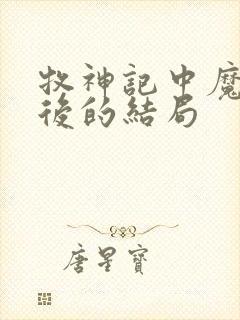 牧神記中魔
後的結局
唐星寶